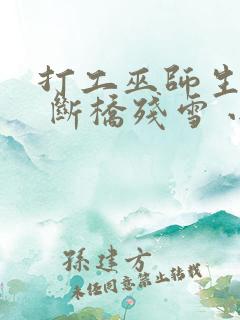 打工巫師生
斷橋殘雪
孫建方
未經同意禁止轉載